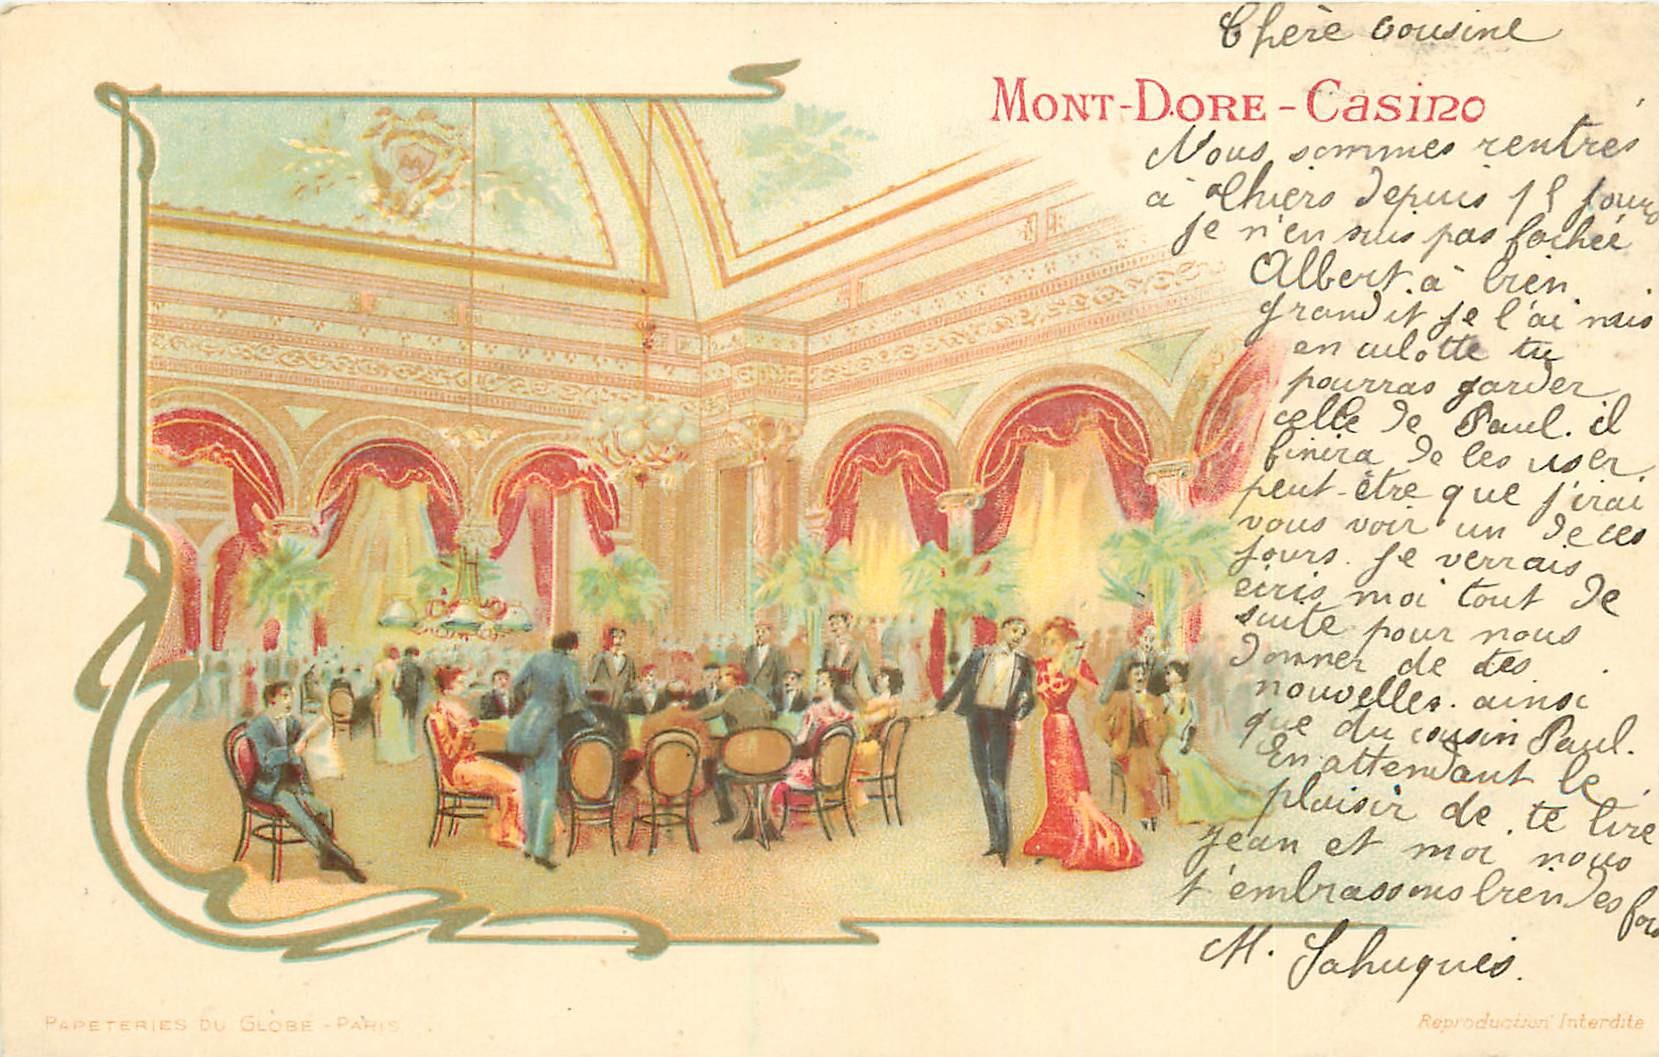 Chère cousine
MONT-DORE-CASINO
Nous sommes rentrés
à Thiers depuis 15 jours
je n'en suis pas fachée
Albert à bien
grandit je l'ai mis
en culotte tu
pourras garder
celle de Paul. il
finira de les user
peut-être que j'irai
vous voir un de ces
jours. je verrais
ecris moi tout de
suite pour nous
donner de tes
nouvelles. ainsi
que du cousin Paul.
En attendant le
plaisir de te lire
Jean et moi nous
t'embrassons bien des fois
M. Sahuquès.
PAPETERIES DU GLOBE - PARIS
Reproduction Interdite